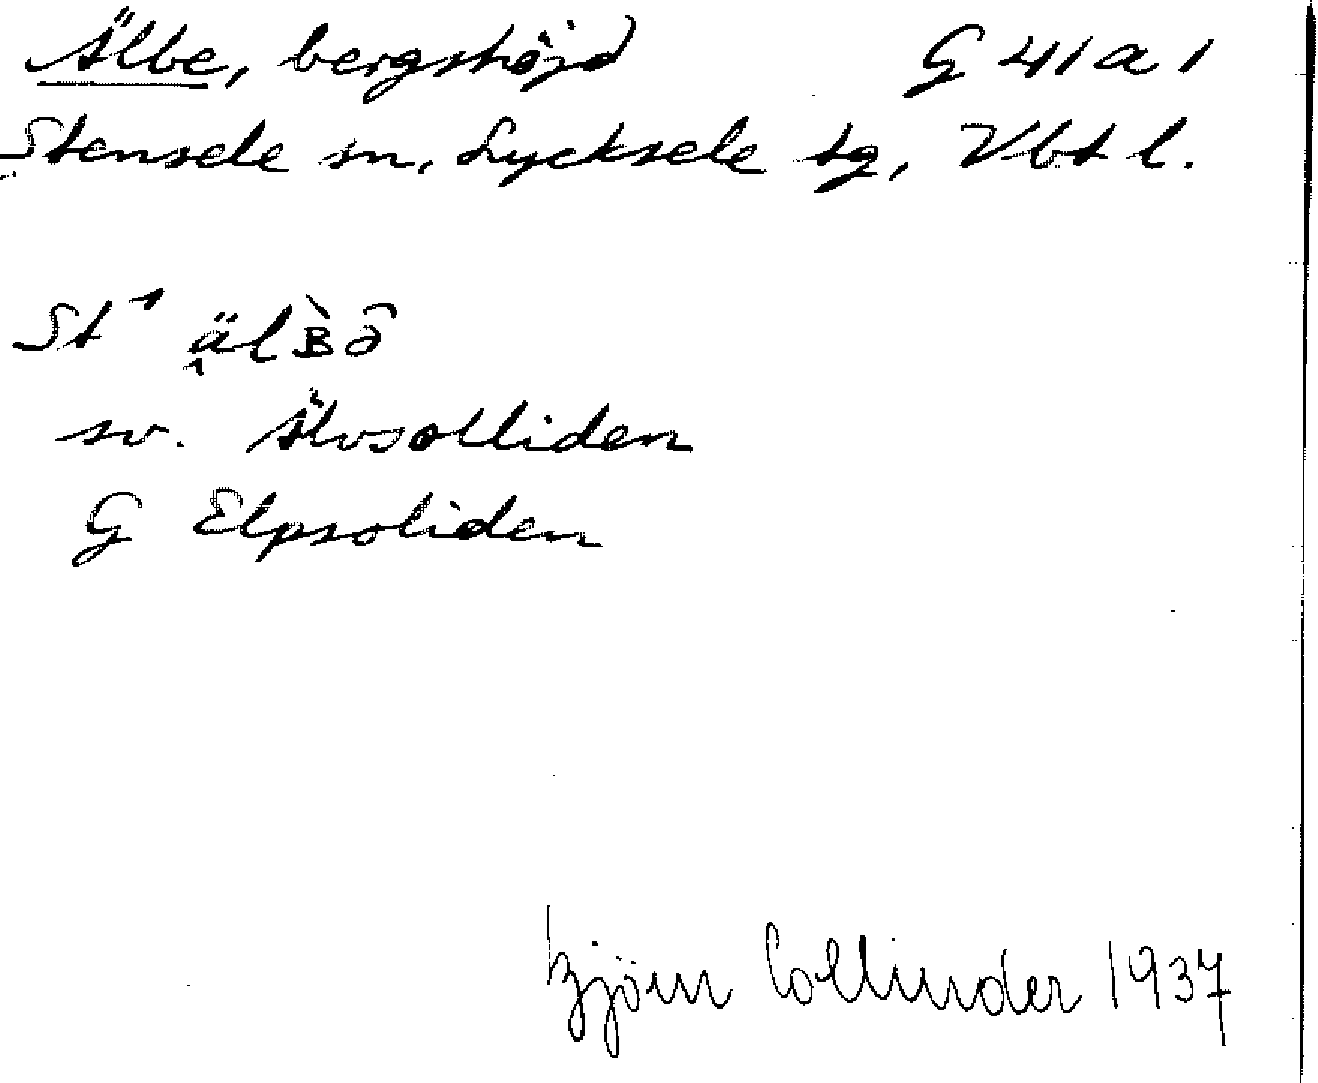 Älbe, bergshöjd G 41 a 1
Stensele sn, Lycksele tg, Vbt l.
St¹ älʙ̀ə̑
sv. Älvsolliden
G Elpsoliden
Björn Collinder 1937